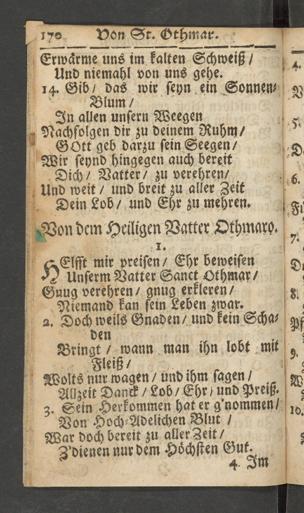 170 Von St. Othmar.
Erwärme uns im kalten Schweiß /
Und niemahl von uns gehe.
14. Gib / das wir seyn ein Sonnen-
Blum /
In allen unsern Weegen
Nachfolgen dir zu deinem Ruhm /
GOtt geb darzu sein Seegen /
Wir seynd hingegen auch bereit
Dich / Vatter / zu verehren /
Und weit / und breit zu aller Zeit
Dein Lob / und Ehr zu mehren.
Von dem Heiligen Vatter Othmaro.
1.
HElfft mir preisen / Ehr beweisen
Unserm Vatter Sanct Othmar /
Gnug verehren / gnug erkleren /
Niemand kan sein Leben zwar.
2. Doch weils Gnaden / und kein Scha-
den
Bringt / wann man ihn lobt mit
Fleiß /
Wolts nur wagen / und ihm sagen /
Allzeit Danck / Lob / Ehr / und Preiß.
3. Sein Herkommen hat er g'nommen /
Von Hoch-Adelichen Blut /
War doch bereit zu aller Zeit /
Z'dienen nur dem Höchsten Gut.
4. Im